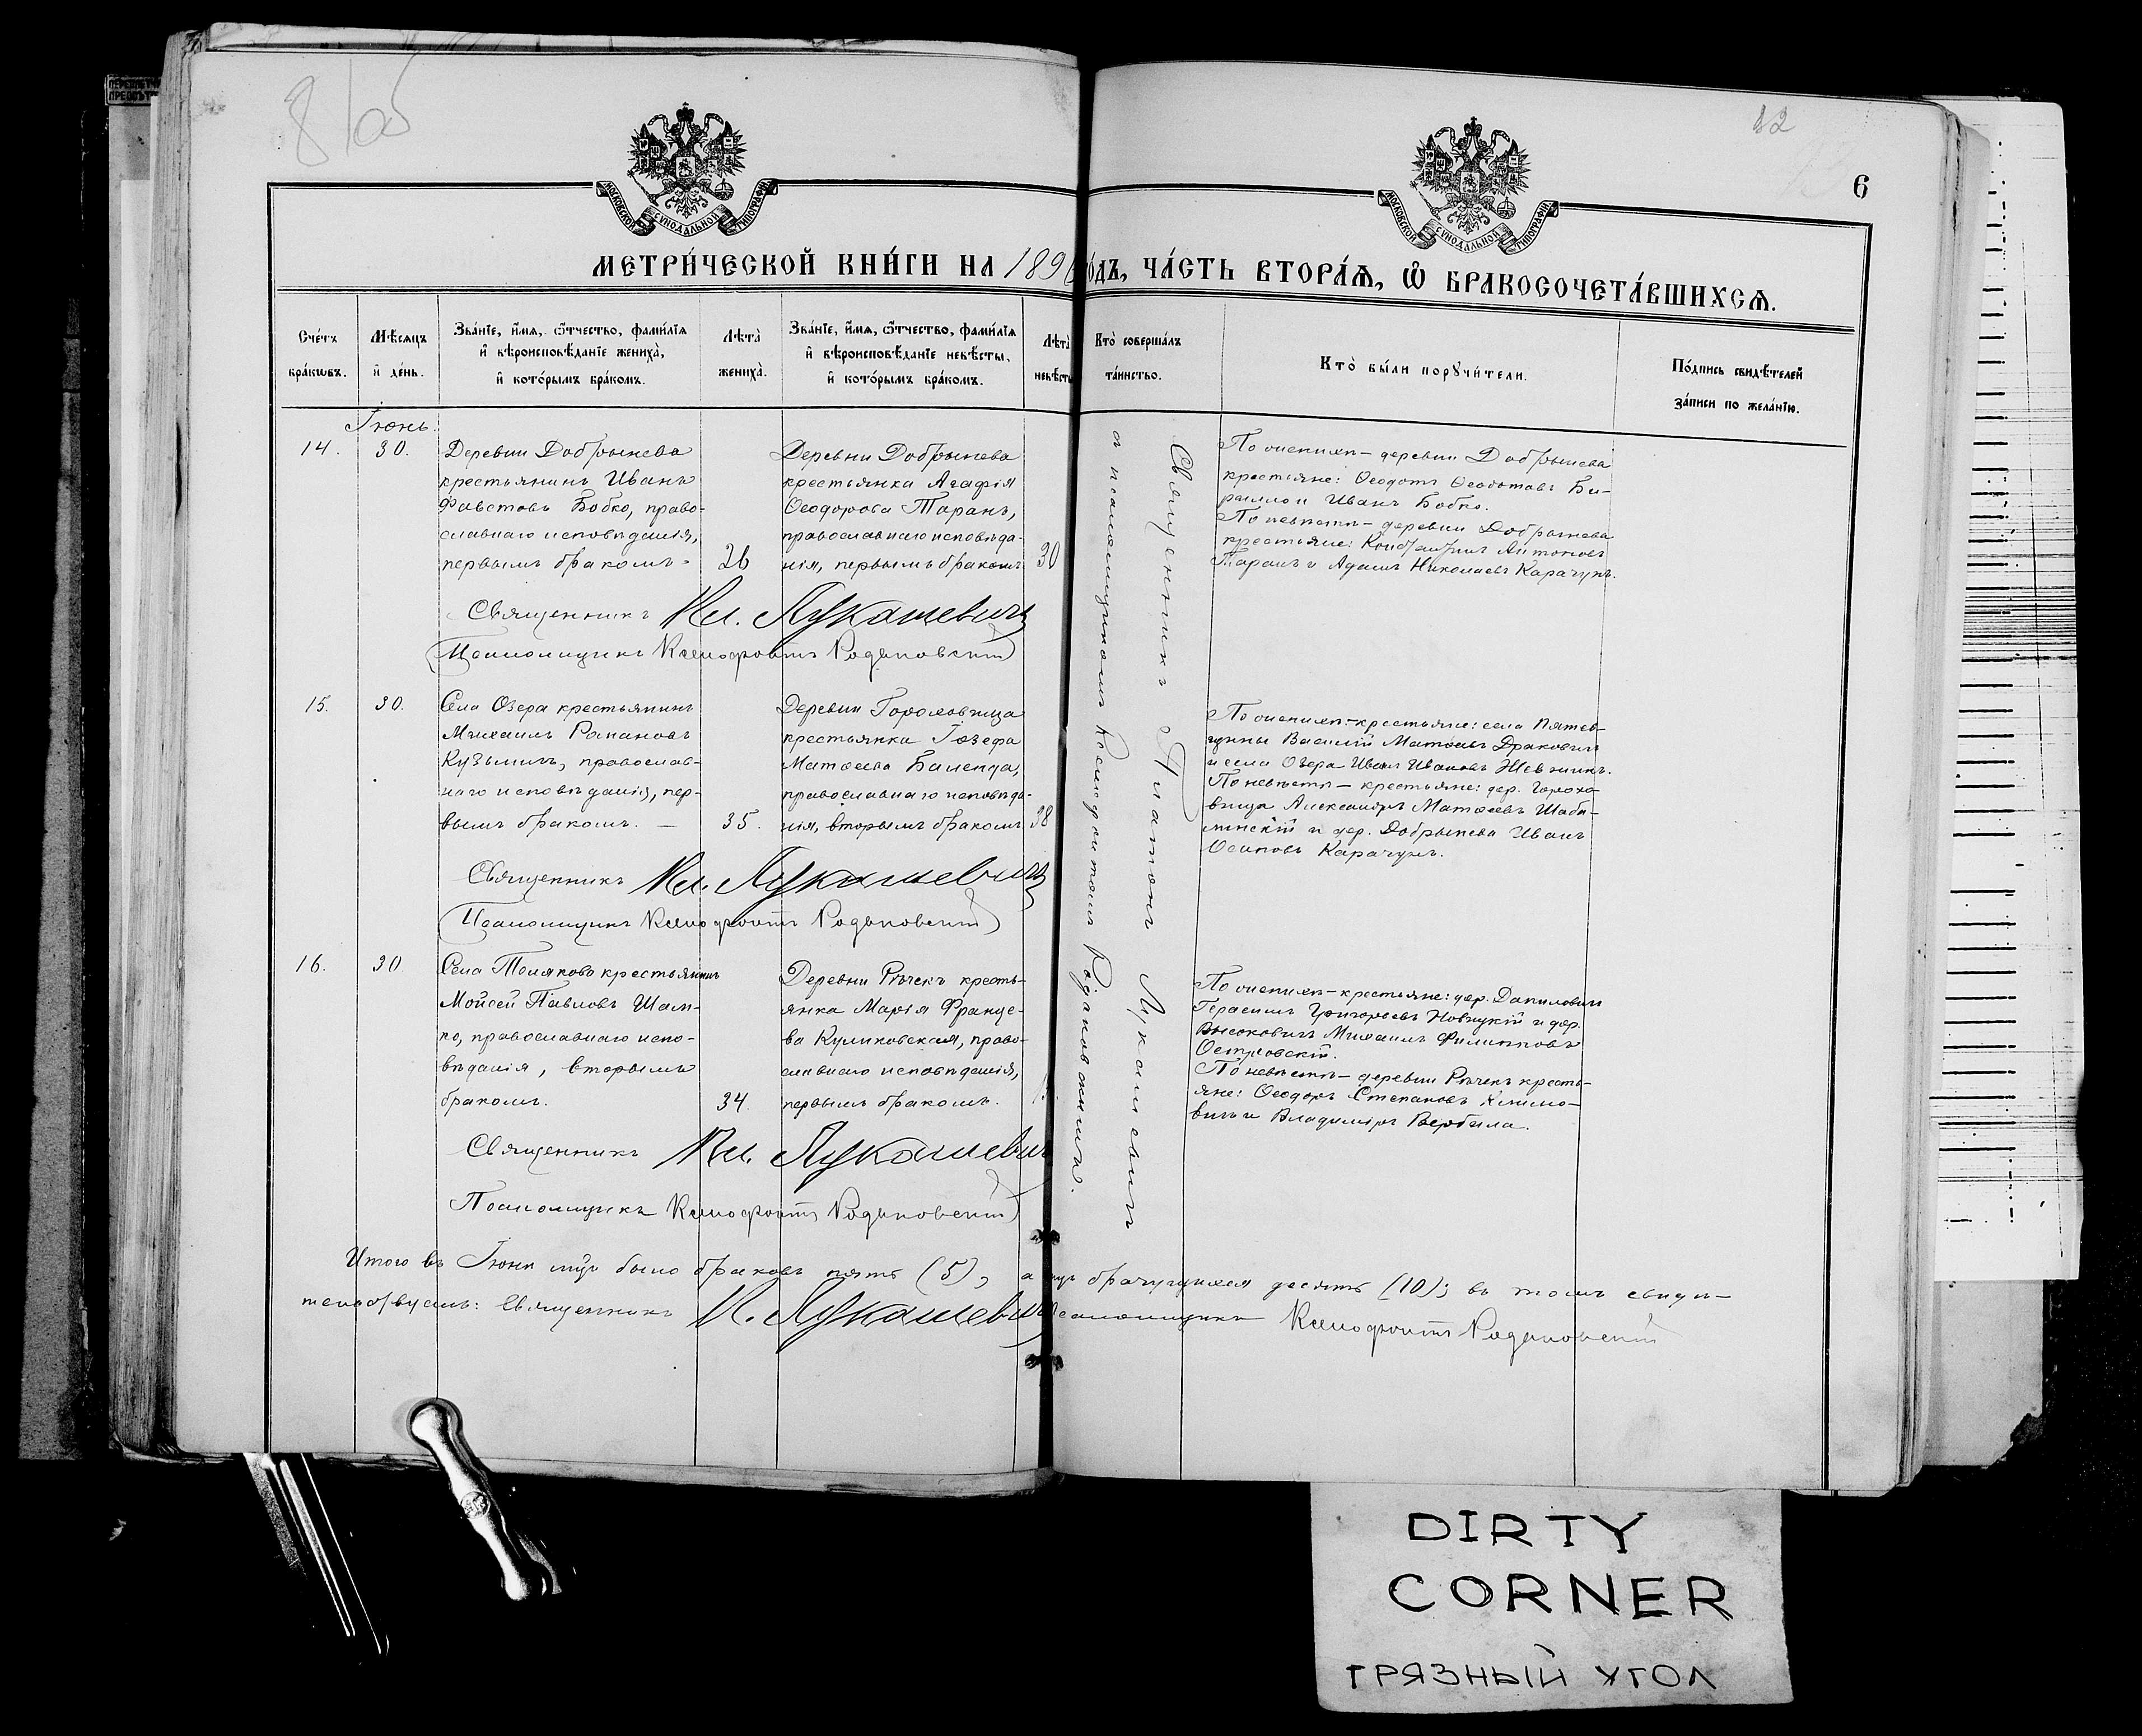 8 об
12
6
МОСКОВСКОЙ СѴНОДАЛЬНОЙ ТИПОГРАФІИ
МОСКОВСКОЙ СѴНОДАЛЬНОЙ ТИПОГРАФІИ
МЕТРИ́ЧЕСКОЙ КНИ́ГИ НА 1896 ГО́ДЪ, ЧА́СТЬ ВТОРА́Ѧ, Ѡ҆ БРАКОСОЧЕТА́ВШИХСѦ.
Сче́тъ бра́кѡвъ.
Мѣ́сяцъ и҆ де́нь.
Зва́нїе, и҆́мѧ, ѻ҆́тчество, фами́лїѧ и҆ вѣроисповѣ́данїе жениха̀, и҆ кото́рымъ бра́комъ.
Лѣта̀ жениха̀.
Зва́нїе, и҆́мѧ, ѻ҆́тчество, фами́лїѧ и҆ вѣроисповѣ́данїе невѣ́сты, и҆ кото́рымъ бра́комъ.
Лѣта̀ невѣ́сты
Кто̀ соверша́лъ та́инство.
Кто̀ бы́ли порꙋчи́тели.
По́дпись свидѣ́телей за́писи по жела́нїю.
Іюнь.
14. 30.
Деревни Добрынева
крестьянинъ Иванъ
Фавстовъ Бобко, право-
славнаго исповѣданія,
первымъ бракомъ.
26
Деревни Добрынева
крестьянка Агафія
Ѳеодорова Таранъ,
православнаго исповѣда-
нія, первымъ бракомъ
30
По женихѣ – деревни Добрынева
крестьяне: Ѳеодотъ Ѳеодотовъ
и Иванъ Бобко.
По невѣстѣ – деревни Добрынева
крестьяне: Константинъ Антоновъ
Таранъ и Адамъ Николаевъ Карачунъ.
Священникъ Пл. Лукашевичъ
Псаломщикъ Ксенофонтъ Родьковскій
15. 30.
Села Озера крестьянинъ
Михаилъ Романовъ
Кузьмичъ, православ-
наго исповѣданія, пер-
вымъ бракомъ. —
35.
Деревни Гороховища
крестьянка Іозефа
Матѳеева
православнаго исповѣда-
нія, вторымъ бракомъ
38
По женихѣ – крестьяне: села
Василій Матѳеевъ Драковичъ
и села Озера Иванъ Ивановъ
По невѣстѣ – крестьяне: дер. Горохо-
вища Александръ Матѳеевъ
и дер. Добрынева Иванъ
Осиповъ Карачунъ.
Священникъ Пл. Лукашевичъ
Псаломщикъ Ксенофонтъ Родьковскій
16. 30.
Села Толяково крестьянинъ
Мойсей Павловъ Шам-
ко, православнаго испо-
вѣданія, вторымъ
бракомъ.
34.
Деревни Рѣчекъ кресть-
янка Марія Франце-
ва Куликовская, право-
славнаго исповѣданія,
первымъ бракомъ.
По женихѣ – крестьяне: дер. Даниловичъ
Герасимъ Григорьевъ Новицкій и дер.
Высоковичъ Михаилъ Филипповъ
Островскій.
По невѣстѣ – деревни Рѣчекъ кресть-
яне: Ѳеодоръ Степановъ Климо-
вичъ и Владиміръ Вербила.
Священникъ Платонъ Лукашевичъ
съ псаломщикомъ Ксенофонтомъ Родьковскимъ.
Священникъ Пл. Лукашевичъ
Псаломщикъ Ксенофонтъ Родьковскій
Итого въ Іюнѣ мцѣ было браковъ пять (5), а лицъ брачущихся десять (10); въ томъ свидѣ-
тельствуемъ: Священникъ П. Лукашевичъ Псаломщикъ Ксенофонтъ Родьковскій
DIRTY
CORNER
ГРЯЗНЫЙ УГОЛ